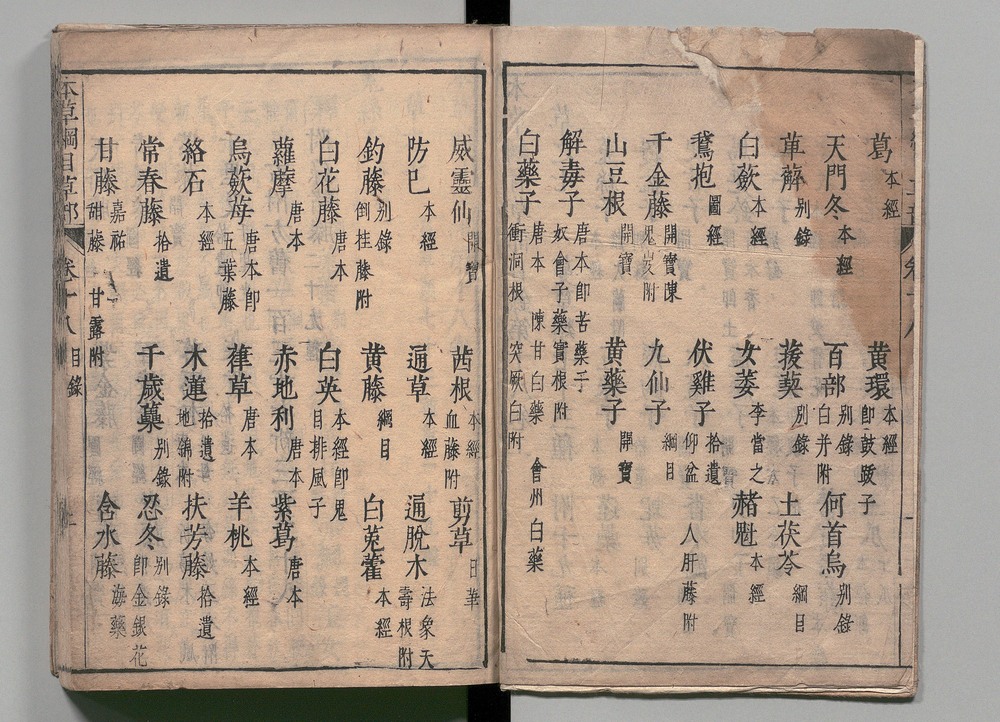 葛 本經 黃環 本經卽鼓跋子
天門冬 本經 百部 別錄白并附 何首烏 別錄
萆薢 別錄 菝葜 別錄 土茯苓 綱目
白蘞 本經 女萎 李當之 赭魁 本經
鵝抱 圖經 伏雞子 拾遺仰盆 人肝藤附
千金藤 開寶陳思岌附 九仙子 綱目
山豆根 開寶 黃藥子 開寶
解毒子 唐本卽苦藥子奴會子藥實根附
白藥子 唐本 陳甘白藥 會州白藥 衝洞根 突厥白附
威靈仙 開寶 茜根 本經血藤附 剪草 日華
防巳 本經 通草 本經 通脫木 法象天壽根附
釣藤 別錄倒挂藤附 黃藤 綱目 白兎藿 本經
白花藤 唐本 白英 本經卽鬼目排風子
蘿藦 唐本 赤地利 唐本 紫葛 唐本
烏蘞苺 唐本卽五葉藤 葎草 唐本 羊桃 本經
絡石 本經 木蓮 拾遺地錦附 扶芳藤 拾遺
常春藤 拾遺 千歲虆 別錄 忍冬 別錄卽金銀花
甘藤 嘉祐甜藤 甘露附 含水藤 海藥
本草綱目草部 卷十八 目錄 上